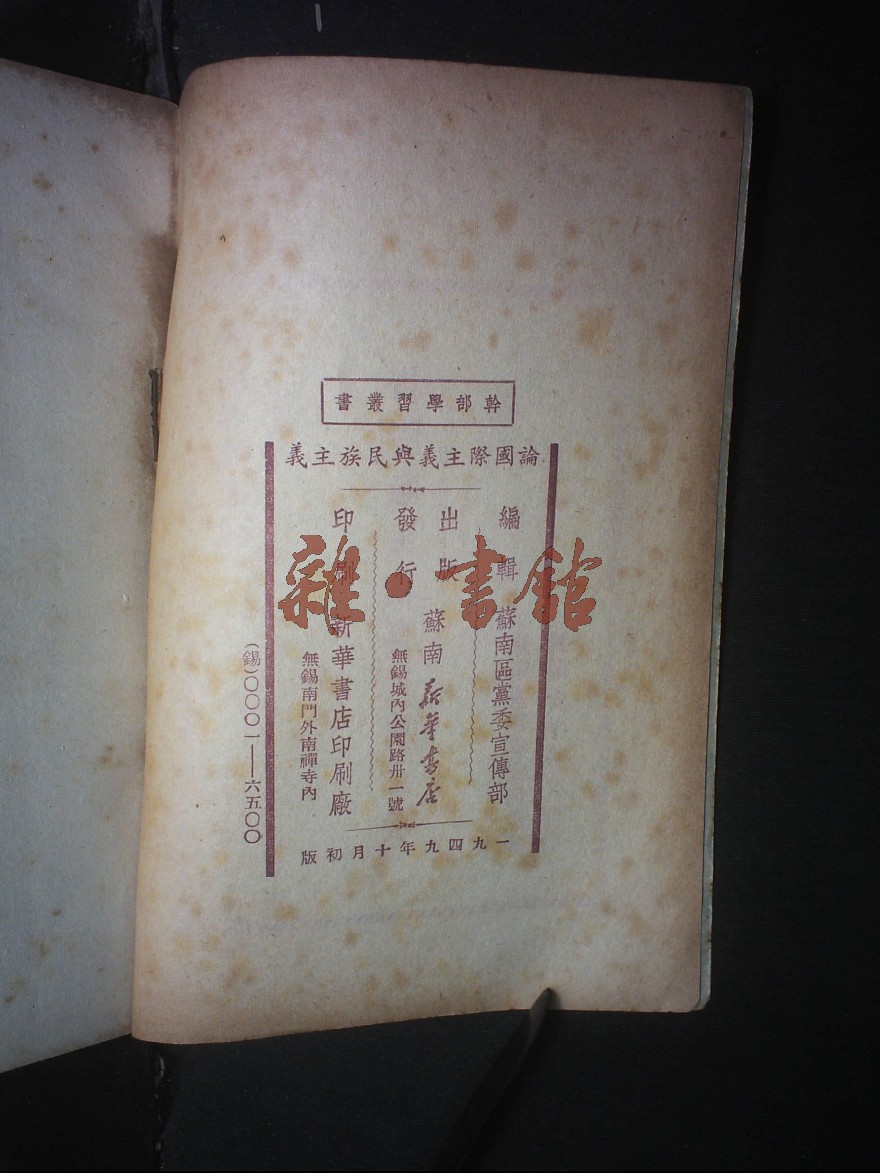 幹部學習叢書
論國際主義與民族主義
編輯 蘇南區黨委宣傳部
出版 蘇南新華書店
發行
無錫城內公園路卅一號
印刷 新華書店印刷廠
無錫南門外南禪寺內
一九四九年十月初版
(錫)〇〇〇一——六五〇〇
雜·書館